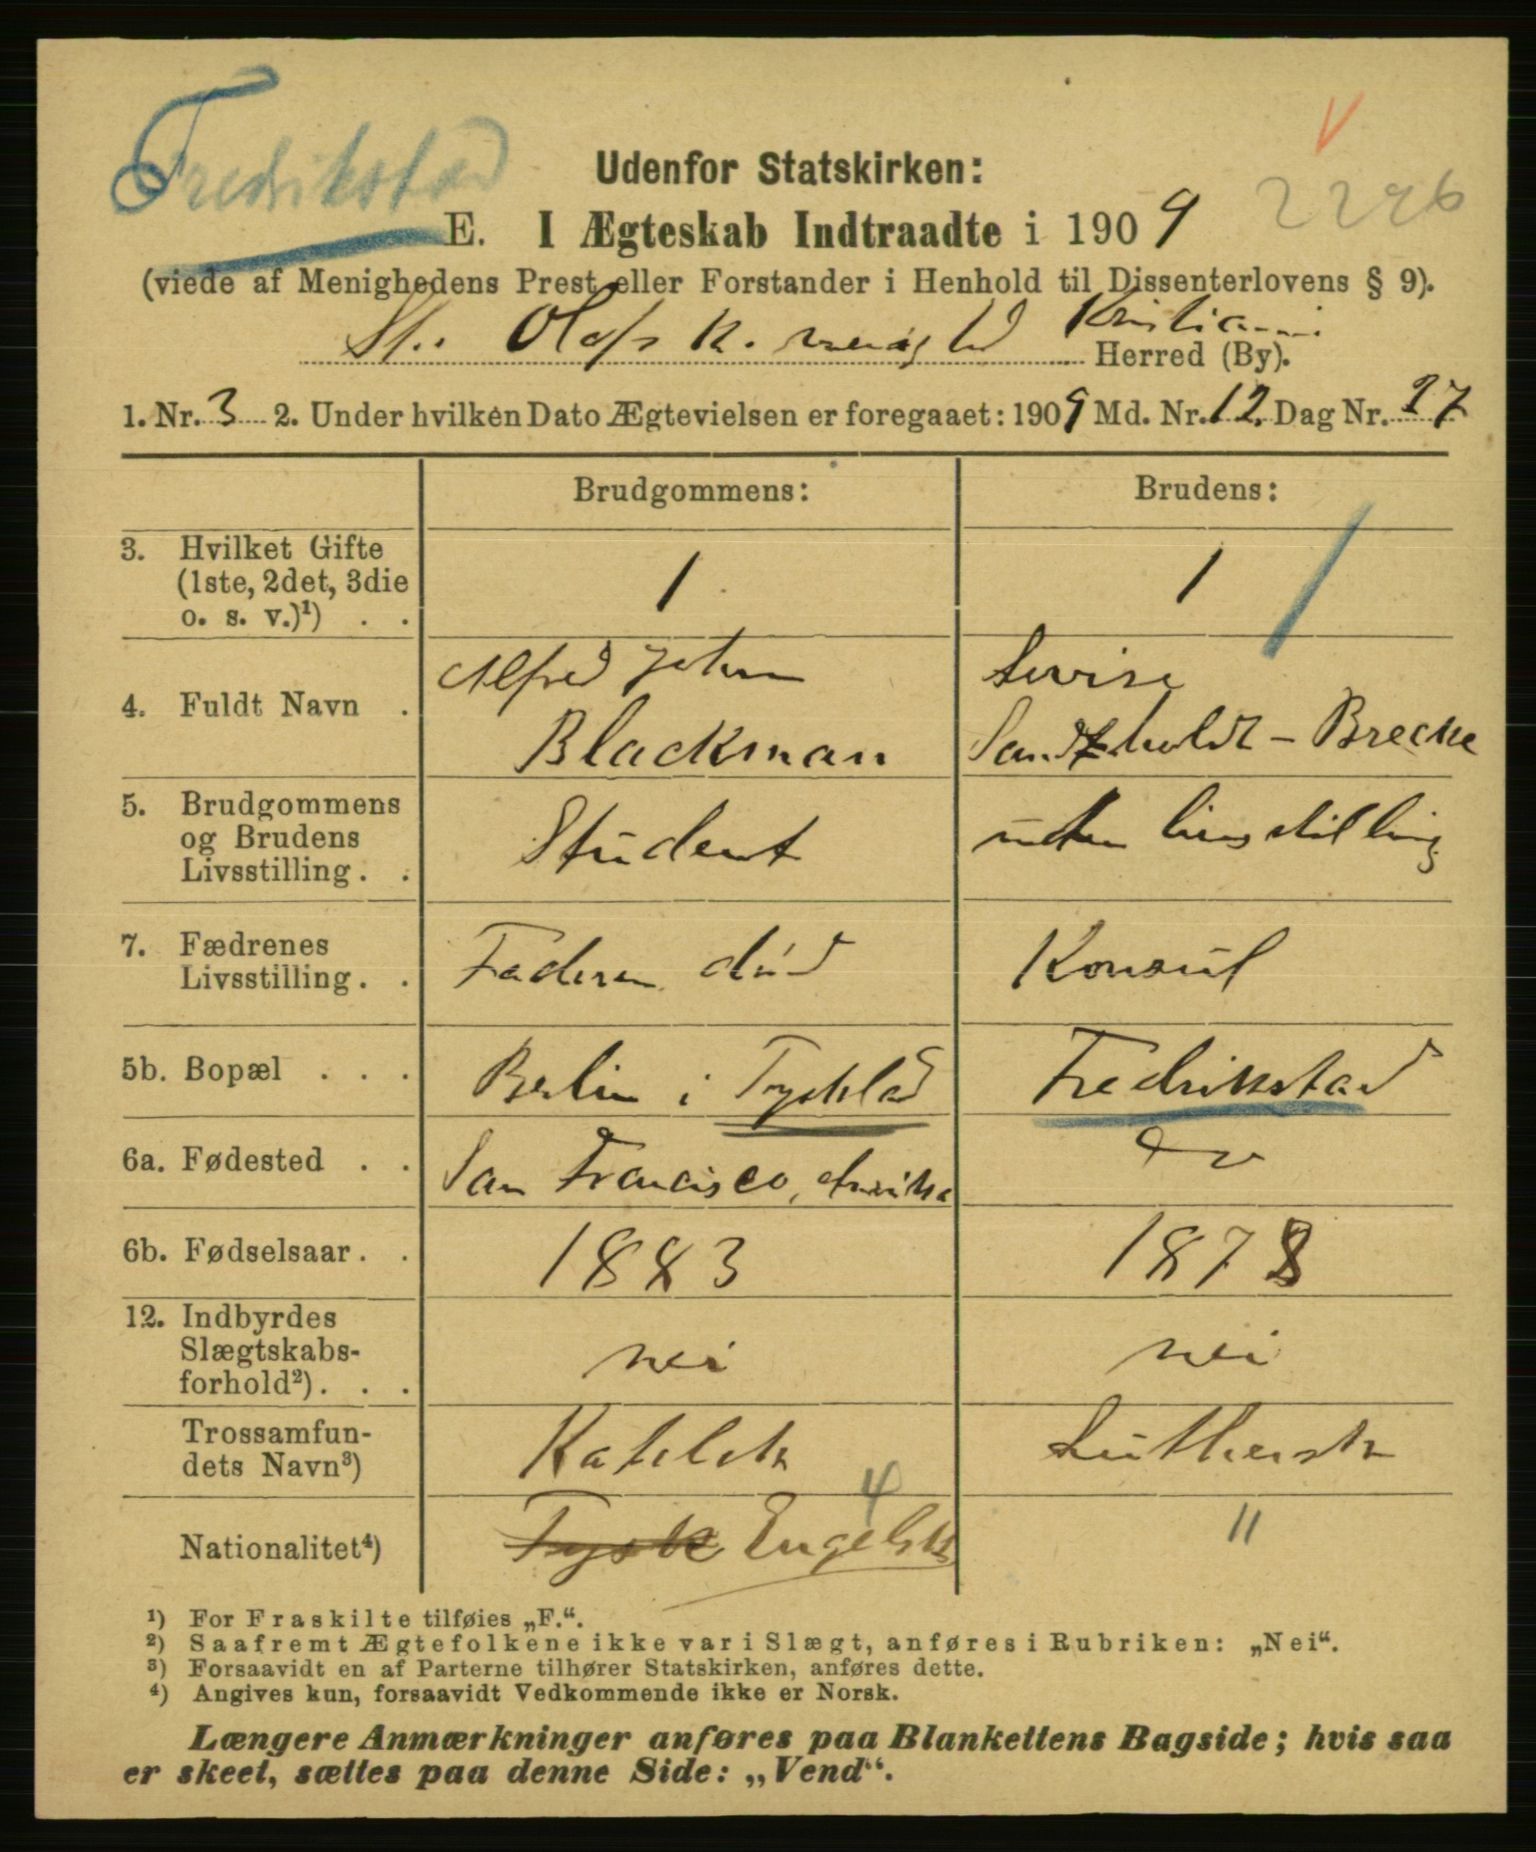 Fredrikstad
V
Udenfor Statskirken:
2296
E. I Ægteskab Indtraadte i 1909
(viede af Menighedens Prest eller Forstander i Henhold til Dissenterlovens § 9).
St. Olafs k. menighd Kristiania Herred (By).
1. Nr. 3 2. Under hvilken Dato Ægtevielsen er foregaaet: 1909 Md. Nr. 12. Dag Nr. 27
Brudgommens: Brudens:
3. Hvilket Gifte
(1ste, 2det, 3die
o. s. v.)¹) . .
1 1
4. Fuldt Navn .
Alfred John
Blackman
Lovise
Sandtholdt - Brecke
5. Brudgommens
og Brudens
Livsstilling . .
Student
uden livsstilling
7. Fædrenes
Livsstilling . .
Faderen død
Konsul
5b. Bopæl . . .
Berlin i Tyskld
Fredrikstad
6a. Fødested . .
San Francisco, Amerika
do
6b. Fødselsaar . .
1883
1878
12. Indbyrdes
Slægtskabs-
forhold²) . . .
nei
nei
Trossamfun-
dets Navn³)
Katolsk
Luthersk
Nationalitet⁴)
Tysk Engelsk
4
"
¹) For Fraskilte tilføies „F.“.
²) Saafremt Ægtefolkene ikke var i Slægt, anføres i Rubriken: „Nei“.
³) Forsaavidt en af Parterne tilhører Statskirken, anføres dette.
⁴) Angives kun, forsaavidt Vedkommende ikke er Norsk.
Længere Anmærkninger anføres paa Blankettens Bagside; hvis saa
er skeet, sættes paa denne Side: „Vend“.